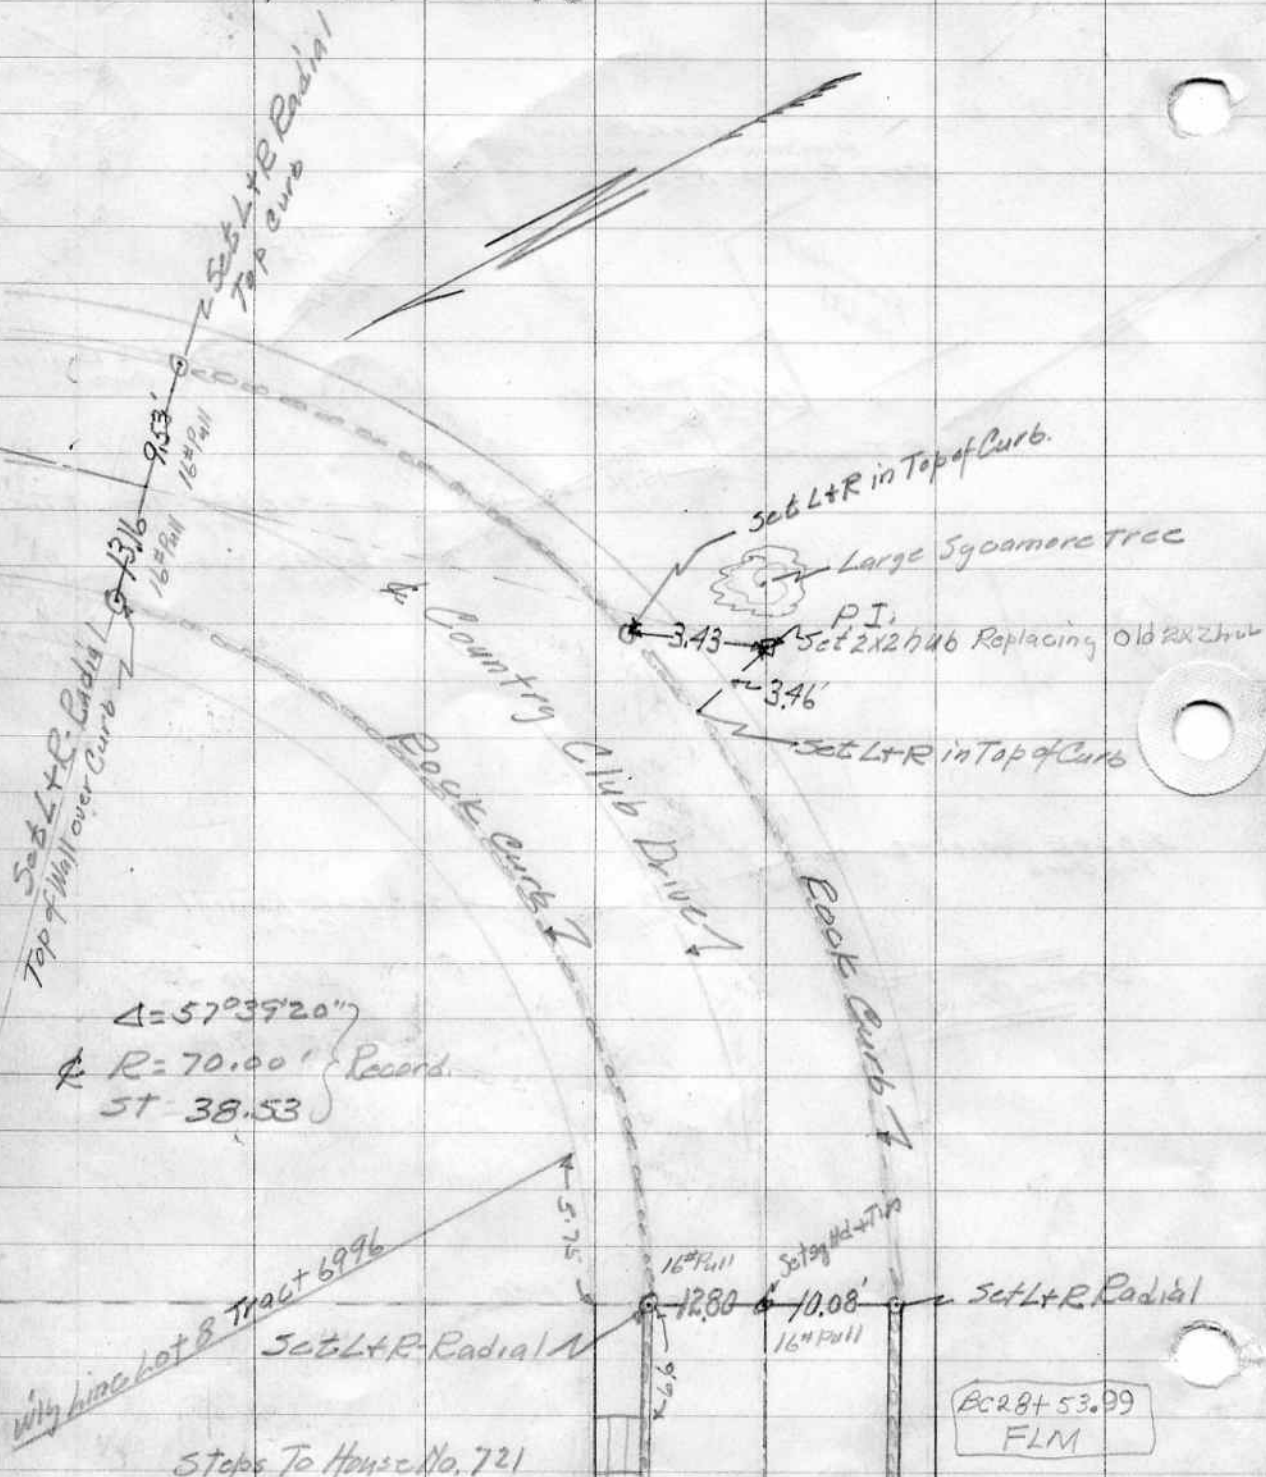 Set L+R Radial
Top Curb
9.53'
16# Pull
13.16
16# Pull
Set L+R-Radial
Top of Wall over Curb
Set L+R in Top of Curb.
Large Sycamore Tree
P.I.
3.43
Set 2x2 hub Replacing Old 2x2 hub
3.46'
Set L+R in Top of Curb
℄ Country Club Drive
Rock Curb
Rock Curb
Δ=57°39'20"
℄ R=70.00' Record.
ST 38.53
5.75
W'ly Line Lot 8 Tract 6996
16# Pull
12.80
10.08'
16# Pull
Set L+R Radial
Set L+R-Radial
6.6
BC 28+53.99
FLM
Steps To House No. 721